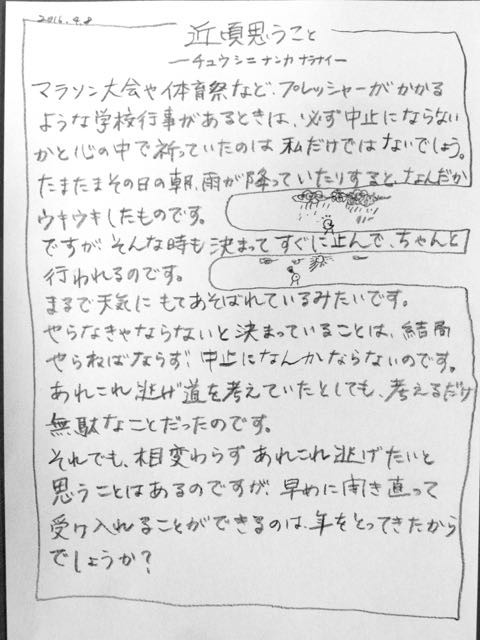 2016.4.8
近頃思うこと
ーチュウシニ ナンカ ナラナイー
マラソン大会や体育祭など、プレッシャーがかかる
ような学校行事があるときは、必ず中止にならない
かと心の中で祈っていたのは私だけではないでしょう。
たまたまその日の朝、雨が降っていたりすると、なんだか
ウキウキしたものです。
ですが そんな時も 決まって すぐに止んで、ちゃんと
行われるのです。
まるで天気に もてあそばれているみたいです。
やらなきゃならないと決まっていることは、結局
やらねばならず、中止になんかならないのです。
あれこれ逃げ道を考えていたとしても、考えるだけ
無駄なことだったのです。
それでも、相変わらず あれこれ逃げたいと
思うことはあるのですが、早めに開き直って
受け入れることができるのは、年をとってきたから
でしょうか？